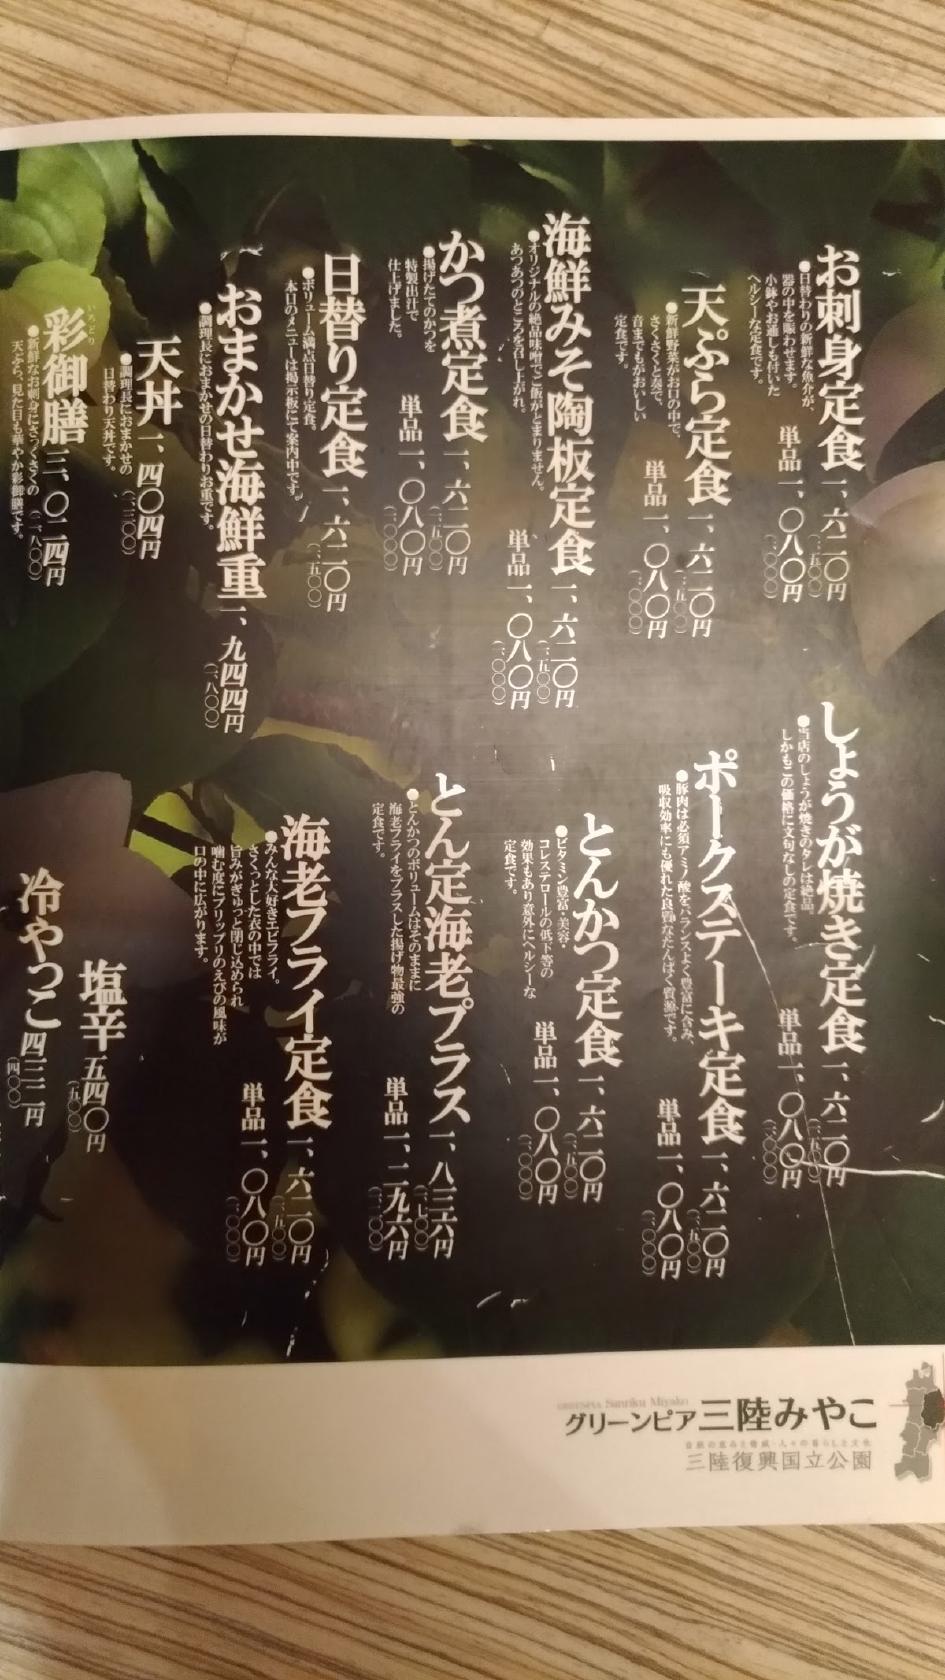 お刺身定食 一、六二〇円
(一、五〇〇)
●日替わりの新鮮な魚介が、
器の中を賑わせます。
小鉢やお通しも付いた
ヘルシーな定食です。
単品 一、〇八〇円
(一、〇〇〇)
天ぷら定食 一、六二〇円
(一、五〇〇)
●新鮮野菜がお口の中で、
さくさくと奏で、
音までもがおいしい
定食です。
単品 一、〇八〇円
(一、〇〇〇)
海鮮みそ陶板定食 一、六二〇円
(一、五〇〇)
●オリジナルの絶品味噌でご飯がとまりません。
あつあつのところを召し上がれ。
単品 一、〇八〇円
(一、〇〇〇)
かつ煮定食 一、六二〇円
(一、五〇〇)
●揚げたてのかつを
特製出汁で
仕上げました。
単品 一、〇八〇円
(一、〇〇〇)
日替り定食 一、六二〇円
(一、五〇〇)
●ボリューム満点日替り定食。
本日のメニューは掲示板にて案内中です。
おまかせ海鮮重 一、九四四円
(一、八〇〇)
●調理長におまかせの日替わりお重です。
天丼 一、四〇四円
(一、三〇〇)
●調理長におまかせの
日替わり天丼です。
いろどり
彩御膳 三、〇二四円
(二、八〇〇)
●新鮮なお刺身にさっくさくの
天ぷら、見た目も華やか彩御膳です。
しょうが焼き定食 一、六二〇円
(一、五〇〇)
●当店のしょうが焼きのタレは絶品。
しかもこの価格に文句なしの定食です。
単品 一、〇八〇円
(一、〇〇〇)
ポークステーキ定食 一、六二〇円
(一、五〇〇)
●豚肉は必須アミノ酸をバランスよく豊富に含み、
吸収効率にも優れた良質なたんぱく質源です。
単品 一、〇八〇円
(一、〇〇〇)
とんかつ定食 一、六二〇円
(一、五〇〇)
●ビタミン豊富・美容・
コレステロールの低下等の
効果もあり意外にヘルシーな
定食です。
単品 一、〇八〇円
(一、〇〇〇)
とん定海老プラス 一、八三六円
(一、七〇〇)
●とんかつのボリュームはそのままに
海老フライをプラスした揚げ物最強の
定食です。
単品 一、二九六円
(一、二〇〇)
海老フライ定食 一、六二〇円
(一、五〇〇)
●みんな大好きエビフライ。
さくっとした衣の中では
旨みがぎゅっと閉じ込められ
噛む度にプリップリのえびの風味が
口の中に広がります。
単品 一、〇八〇円
(一、〇〇〇)
塩辛 五四〇円
(五〇〇)
冷やっこ 四三二円
(四〇〇)
GREENPIA Sanriku Miyako
グリーンピア三陸みやこ
自然の恵みと脅威・人々の暮らしと文化
三陸復興国立公園